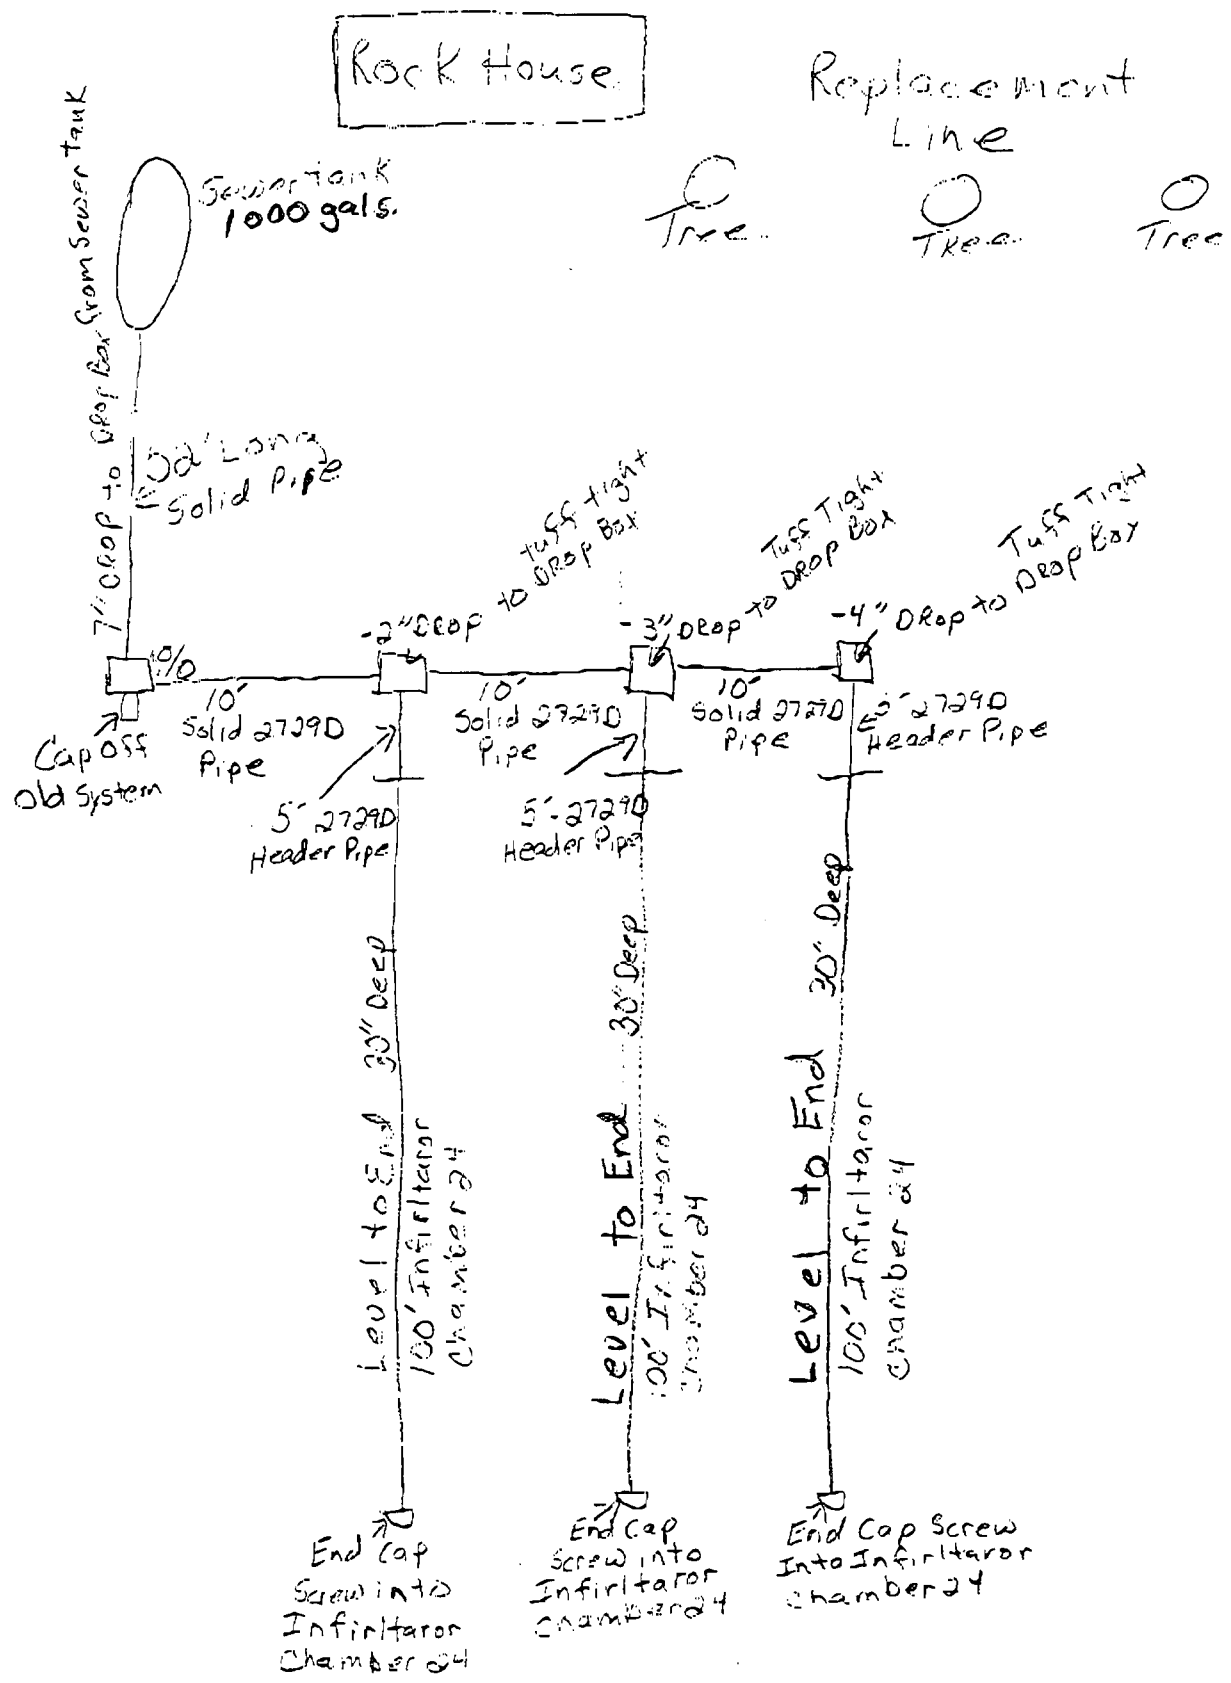 Rock House
Replacement
Line
Sewertank
1000 gals.
Tree
Tree
Tree
7" DROP to DROP Box from Sewer tank
52' Long
Solid Pipe
-2" DROP to DROP Box
tuff tight
-3" DROP to DROP Box
Tuff Tight
-4" DROP to DROP Box
Tuff Tight
Cap Off
Old System
10'
Solid 2729D
Pipe
10'
Solid 2729D
Pipe
10'
Solid 2729D
Pipe
5' 2729D
Header Pipe
5' 2729D
Header Pipe
5'-2729D
Header Pipe
Level to End 30" Deep
100' Infirltaror
Chamber 24
Level to End 30" Deep
100' Infirltaror
Chamber 24
Level to End 30" Deep
100' Infirltaror
Chamber 24
End Cap
Screw into
Infirltaror
Chamber 24
End Cap
Screw into
Infirltaror
Chamber 24
End Cap Screw
Into Infirltaror
Chamber 24